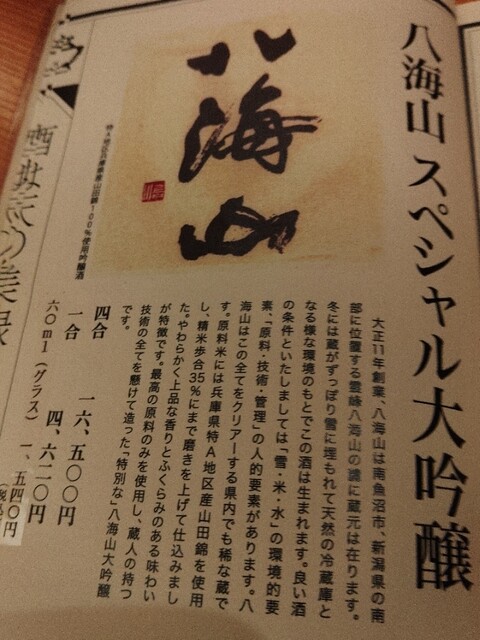 八海山 スペシャル大吟醸
大正11年創業、八海山は南魚沼市、新潟県の南
部に位置する霊峰八海山の麓に蔵元は在ります。
冬には蔵がすっぽり雪に埋もれて天然の冷蔵庫と
なる様な環境のもとでこの酒は生まれます。良い酒
の条件といたしましては「雪・米・水」の環境的要
素、「原料・技術・管理」の人的要素があります。八
海山はこの全てをクリアーする県内でも稀な蔵で
す。原料米には兵庫県特A地区産山田錦を使用
し、精米歩合35％にまで磨きを上げて仕込みまし
た。やわらかく上品な香りとふくらみのある味わい
が特徴です。最高の原料のみを使用し、蔵人の持つ
技術の全てを懸けて造った「特別な」八海山大吟醸
です。
八海山
特A地区兵庫県産山田錦100％使用吟醸酒
四合 一六、五〇〇円
一合 四、六二〇円
六〇ml（グラス） 一、五四〇円